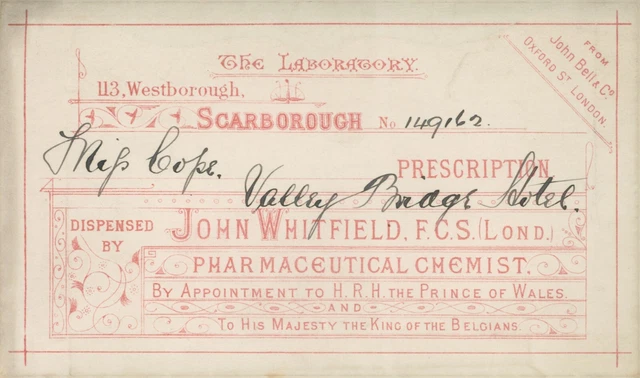 The Laboratory.
113, Westborough,
FROM
John Bell & Co
OXFORD ST LONDON.
SCARBOROUGH No 149162.
Miss Cope.
PRESCRIPTION
Valley Bridge Hotel.
DISPENSED
BY
JOHN WHITFIELD, F.C.S. (LOND.)
PHARMACEUTICAL CHEMIST.
BY APPOINTMENT TO H.R.H. THE PRINCE OF WALES.
AND
TO HIS MAJESTY THE KING OF THE BELGIANS.